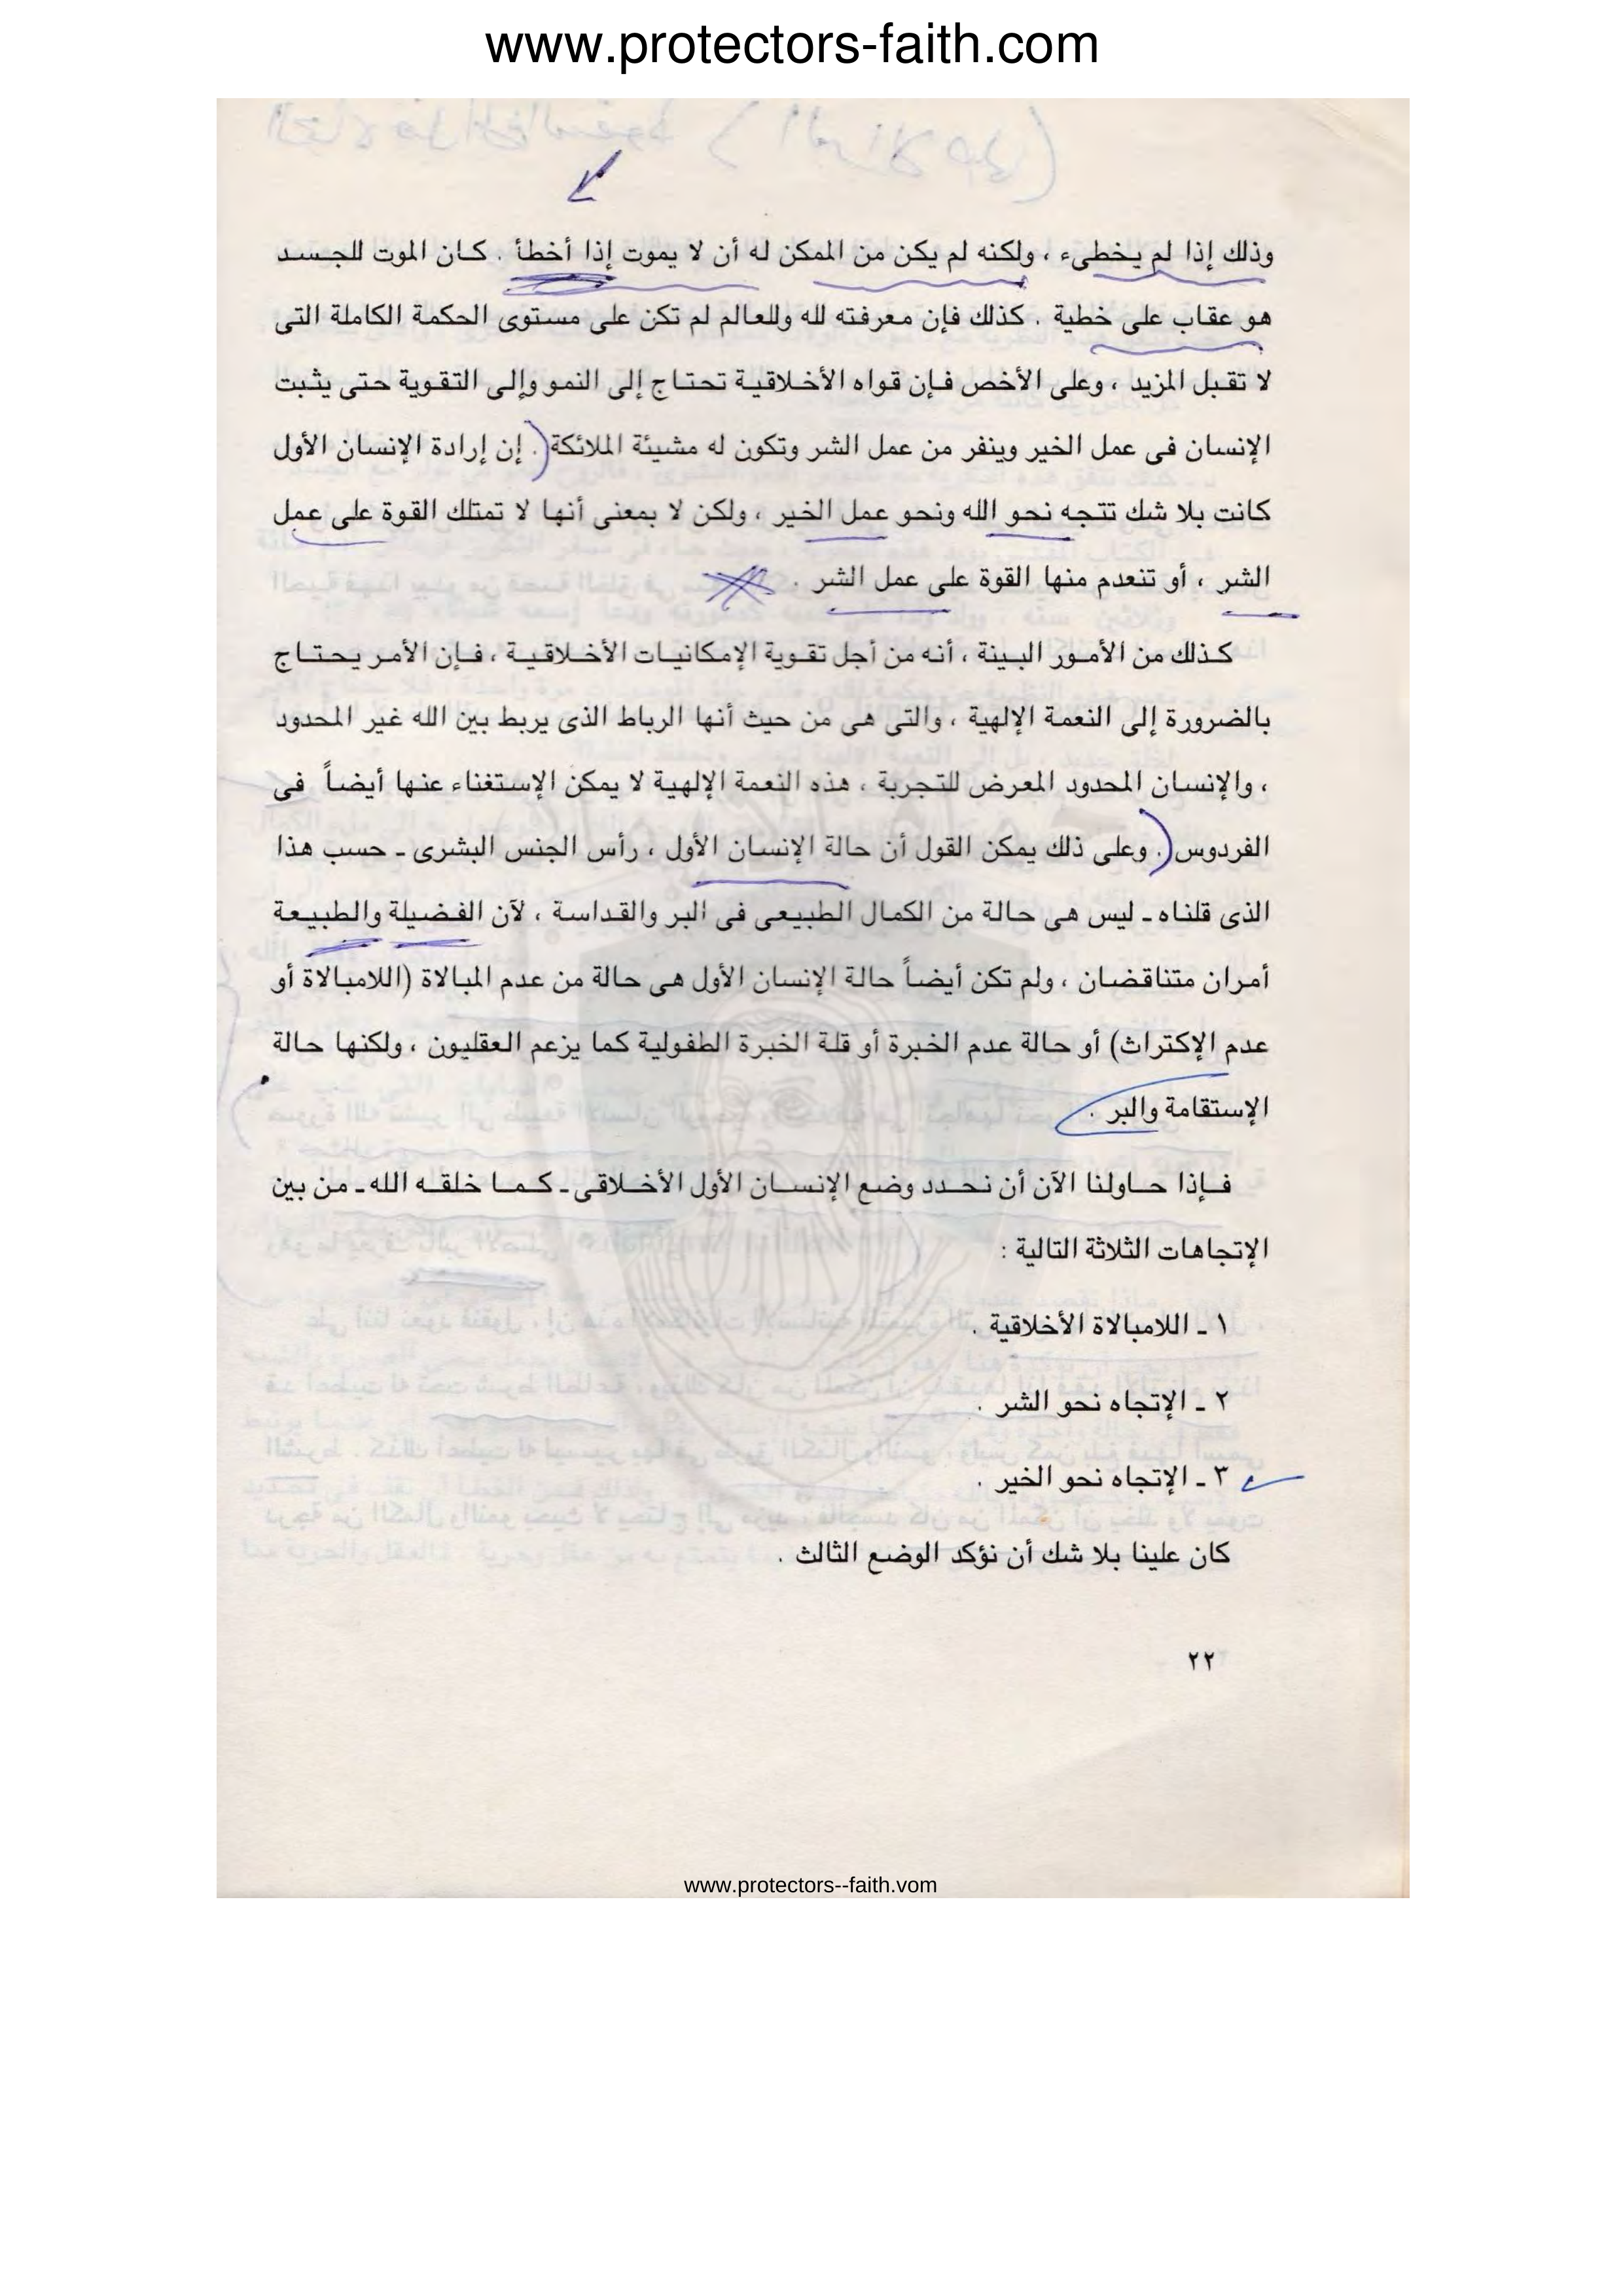 www.protectors-faith.com
وذلك إذا لم يخطىء ، ولكنه لم يكن من الممكن له أن لا يموت إذا أخطأ . كان الموت للجسد
هو عقاب على خطية . كذلك فإن معرفته لله وللعالم لم تكن على مستوى الحكمة الكاملة التى
لا تقبل المزيد ، وعلى الأخص فإن قواه الأخلاقية تحتاج إلى النمو وإلى التقوية حتى يثبت
الإنسان فى عمل الخير وينفر من عمل الشر وتكون له مشيئة الملائكة . إن إرادة الإنسان الأول
كانت بلا شك تتجه نحو الله ونحو عمل الخير ، ولكن لا بمعنى أنها لا تمتلك القوة على عمل
الشر ، أو تنعدم منها القوة على عمل الشر .
كذلك من الأمور البينة ، أنه من أجل تقوية الإمكانيات الأخلاقية ، فإن الأمر يحتاج
بالضرورة إلى النعمة الإلهية ، والتى هى من حيث أنها الرباط الذى يربط بين الله غير المحدود
، والإنسان المحدود المعرض للتجربة ، هذه النعمة الإلهية لا يمكن الإستغناء عنها أيضاً فى
الفردوس . وعلى ذلك يمكن القول أن حالة الإنسان الأول ، رأس الجنس البشرى ـ حسب هذا
الذى قلناه ـ ليس هى حالة من الكمال الطبيعى فى البر والقداسة ، لآن الفضيلة والطبيعة
أمران متناقضان ، ولم تكن أيضاً حالة الإنسان الأول هى حالة من عدم المبالاة (اللامبالاة أو
عدم الإكتراث) أو حالة عدم الخبرة أو قلة الخبرة الطفولية كما يزعم العقليون ، ولكنها حالة
الإستقامة والبر .
فإذا حاولنا الآن أن نحدد وضع الإنسان الأول الأخلاقى ـ كما خلقه الله ـ من بين
الإتجاهات الثلاثة التالية :
١ ـ اللامبالاة الأخلاقية .
٢ ـ الإتجاه نحو الشر .
٣ ـ الإتجاه نحو الخير .
كان علينا بلا شك أن نؤكد الوضع الثالث .
٢٢
www.protectors--faith.vom